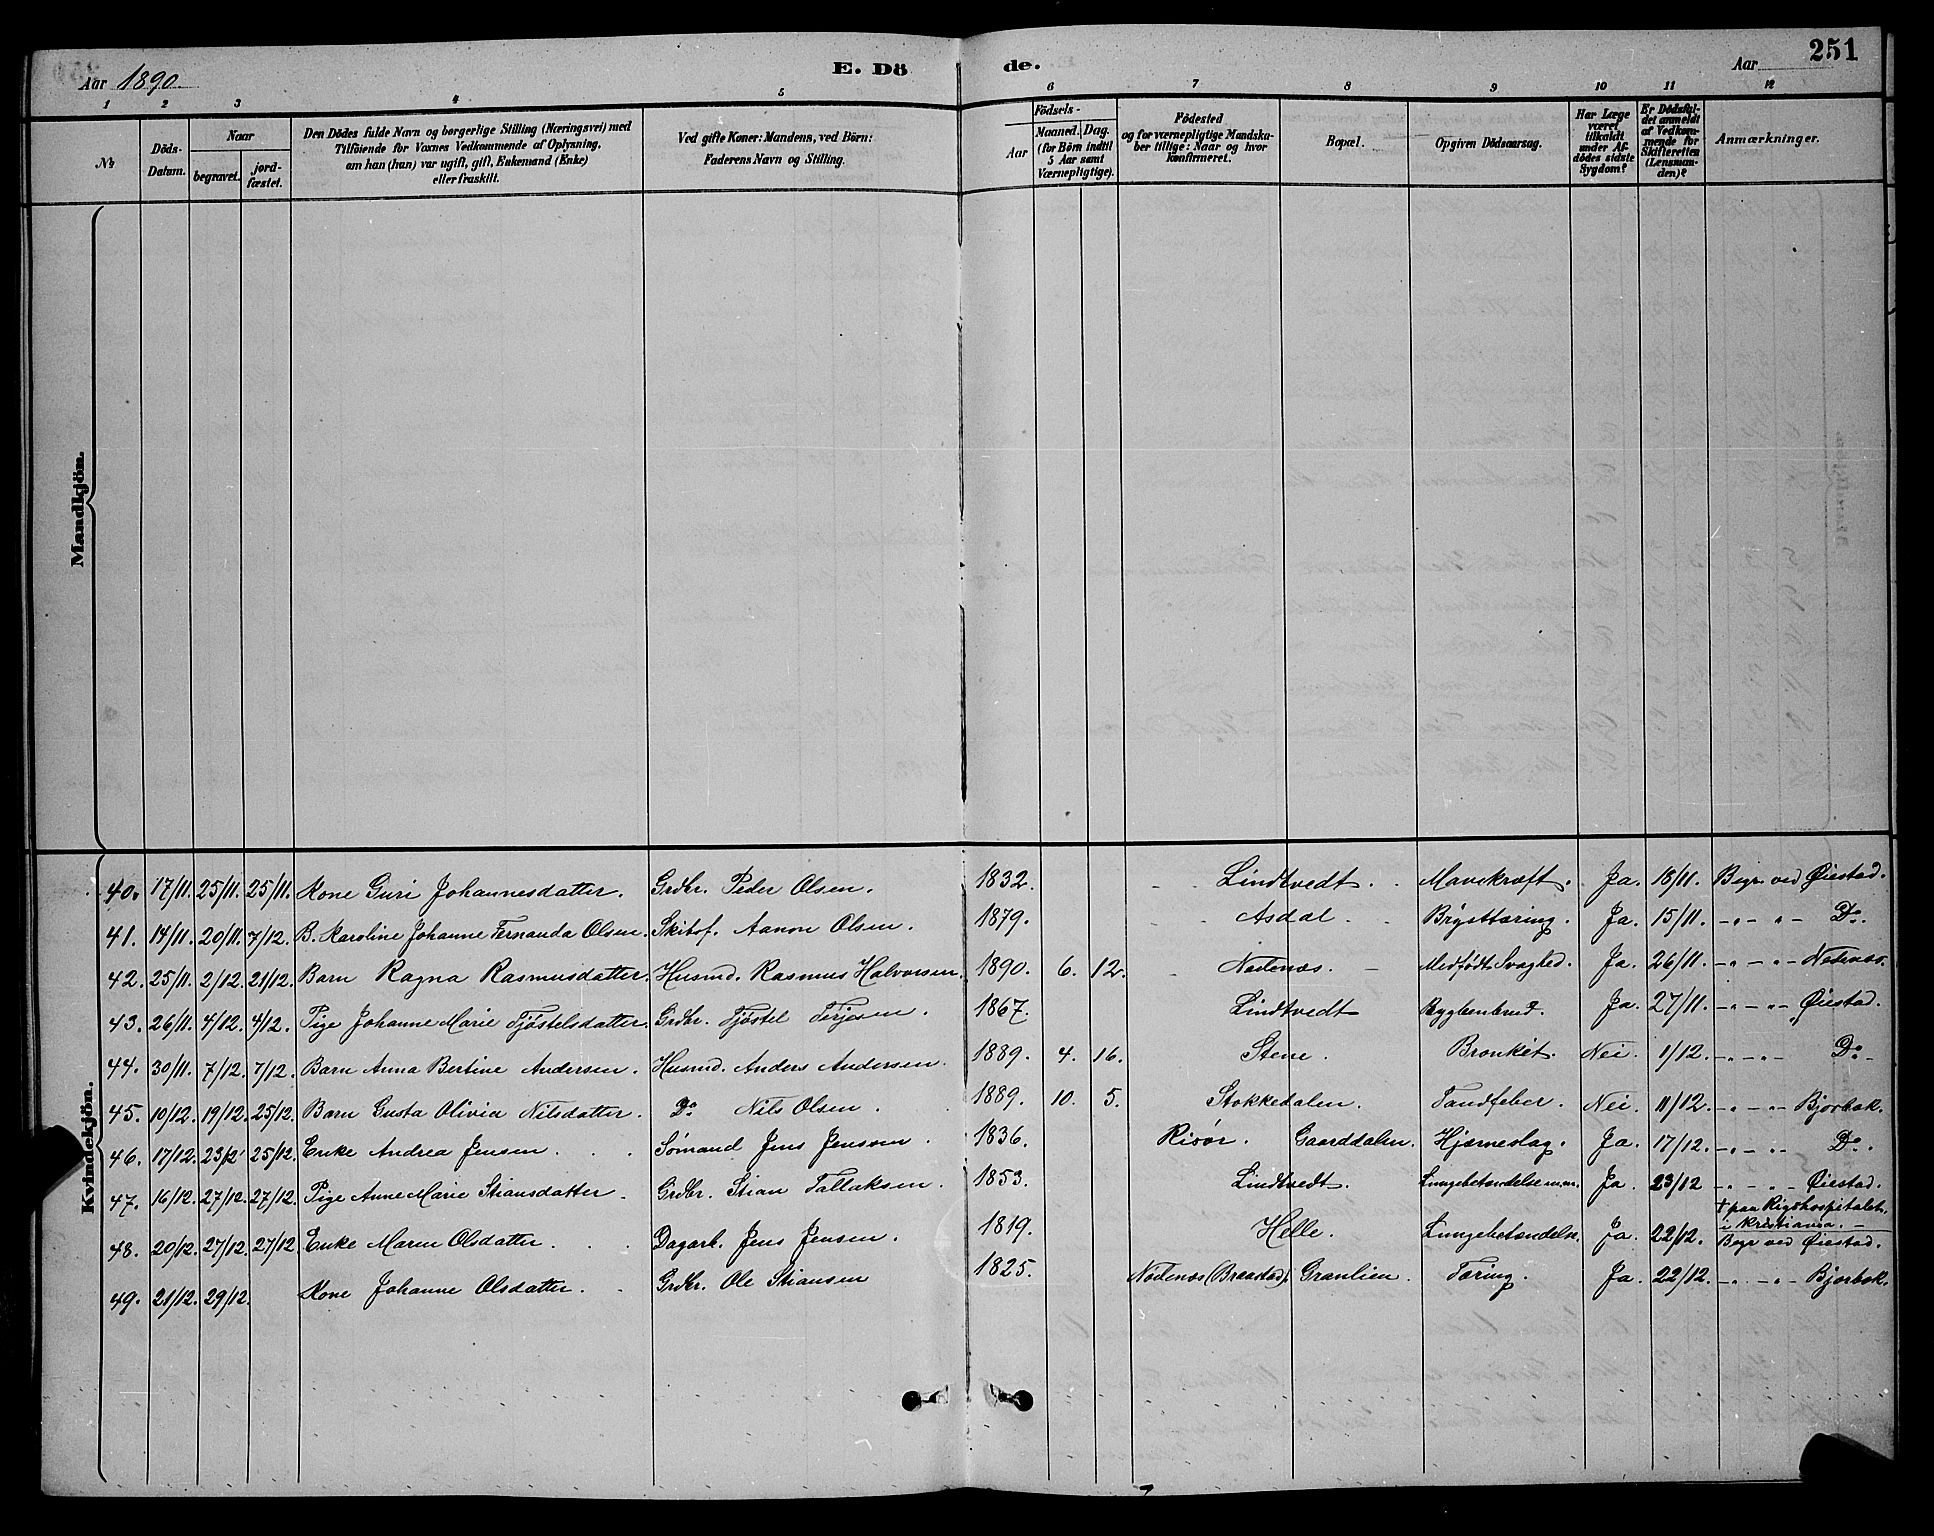 Aar 1890.
E. Dö de.
Aar
251
1 2 3 4 5 6 7 8 9 10 11 12
№
Döds-Datum.
Naar
begravet.
jord-fæstet.
Den Dödes fulde Navn og borgerlige Stilling (Næringsvei) med
Tilföiende for Voxnes Vedkommende af Oplysning,
om han (hun) var ugift, gift, Enkemand (Enke)
eller fraskilt.
Ved gifte Koner: Mandens, ved Börn:
Faderens Navn og Stilling.
Födsels-
Aar
Maaned. Dag.
(for Börn indtil
5 Aar samt
Værnepligtige).
Födested
og for værnepligtige Mandska-
ber tillige: Naar og hvor
konfirmeret.
Bopæl.
Opgiven Dödsaarsag.
Har Læge
været
tilkaldt
under Af-
dödes sidste
Sygdom?
Er Dødsfal-
det anmeldt
af Vedkom-
mende for
Skifteretten
(Lensman-
den)?
Anmærkninger.
Mandkjön.
Kvindekjön.
40. 17/11. 25/11. 25/11. Kone Guri Johannesdatter. Grdbr. Peder Olsen. 1832. Lindtvedt. Mavekræft. Ja. 18/11. Begr. ved Øiestad.
41. 14/11. 20/11. 7/12. B. Karoline Johanne Fernanda Olsen. Skibsf. Aanon Olsen. 1879. Asdal. Brysttæring. Ja. 15/11. -"- "- Do.
42. 25/11. 2/12. 21/12. Barn Ragna Rasmusdatter. Husmd. Rasmus Halvorsen. 1890. 6. 12. Nedenæs. Medfødt Svaghed. Ja. 26/11. -"- "- Nedenæs.
43. 26/11. 4/12. 4/12. Pige Johanne Marie Tjøstelsdatter. Grdbr. Tjøstel Terjesen. 1867. Lindtvedt Rygbenbrud. Ja. 27/11. -"- "- Øiestad.
44. 30/11. 7/12. 7/12. Barn Anna Bertine Andersen. Husmd. Anders Andersen. 1889. 4. 16. Stene. Bronkit. Nei. 1/12. -"- "- Do
45. 10/12. 19/12. 25/12. Barn Gusta Olivia Nilsdatter. Do Nils Olsen. 1889. 10. 5. Stokkedalen. Tandfeber. Nei. 11/12. -"- "- Bjorbæk.
46. 17/12. 23/12 25/12. Enke Andrea Jensen. Sømand Jens Jensen. 1836. Risør. Gaarddalen. Hjerneslag. Ja. 17/12. -"- "- Do.
47. 16/12. 27/12. 27/12. Pige Anne Marie Stiansdatter. Grdbr. Stian Tallaksen. 1853. Lindtvedt. Lungebetændelse m.m. Ja. 23/12 -"- "- Øiestad.
† paa Rigshospitalet
i Kristiania. –
48. 20/12. 27/12. 27/12 Enke Maren Olsdatter. Dagarb. Jens Jensen. 1819. Helle. Lungebetændelse. Ja. 22/12. Begr. ved Øiestad.
49. 21/12. 29/12. Kone Johanne Olsdatter. Grdbr. Ole Stiansen 1825. Nedenæs (Braastad). Granlien. Tæring. Ja. 22/12. -"- "- Bjorbæk.